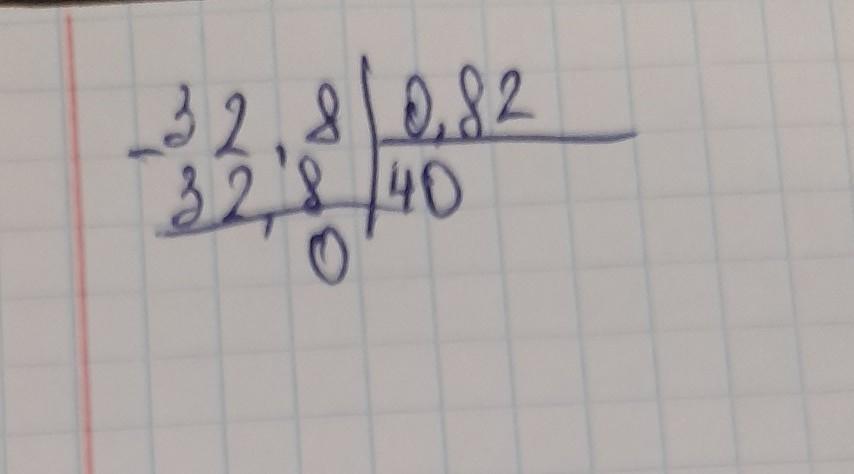 -32,8 0,82
32,8 40
0